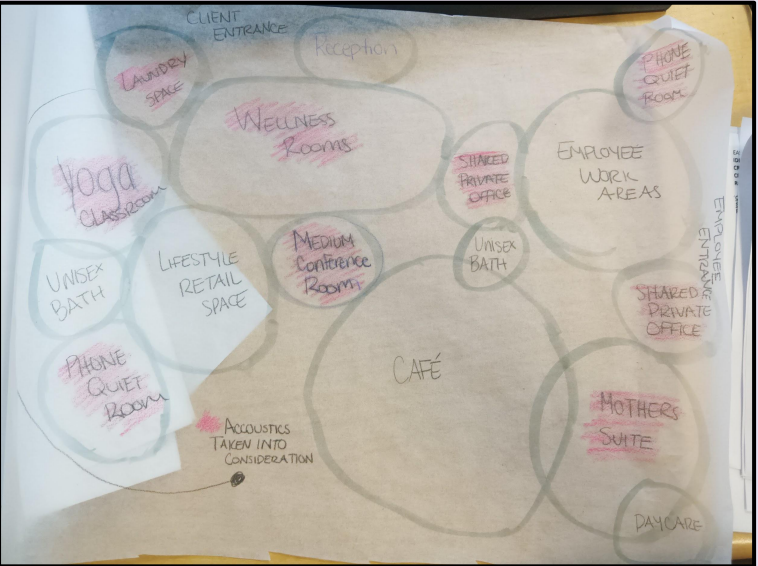 CLIENT
ENTRANCE
Reception
LAUNDRY
SPACE
PHONE
QUIET
ROOM
WELLNESS
ROOMS
SHARED
PRIVATE
OFFICE
EMPLOYEE
WORK
AREAS
Yoga
CLASSROOM
EMPLOYEE
ENTRANCE
UNISEX
BATH
LIFESTYLE
RETAIL
SPACE
MEDIUM
CONFERENCE
ROOM
UNISEX
BATH
SHARED
PRIVATE
OFFICE
PHONE
QUIET
ROOM
CAFÉ
MOTHERS
SUITE
ACCOUSTICS
TAKEN INTO
CONSIDERATION
DAYCARE